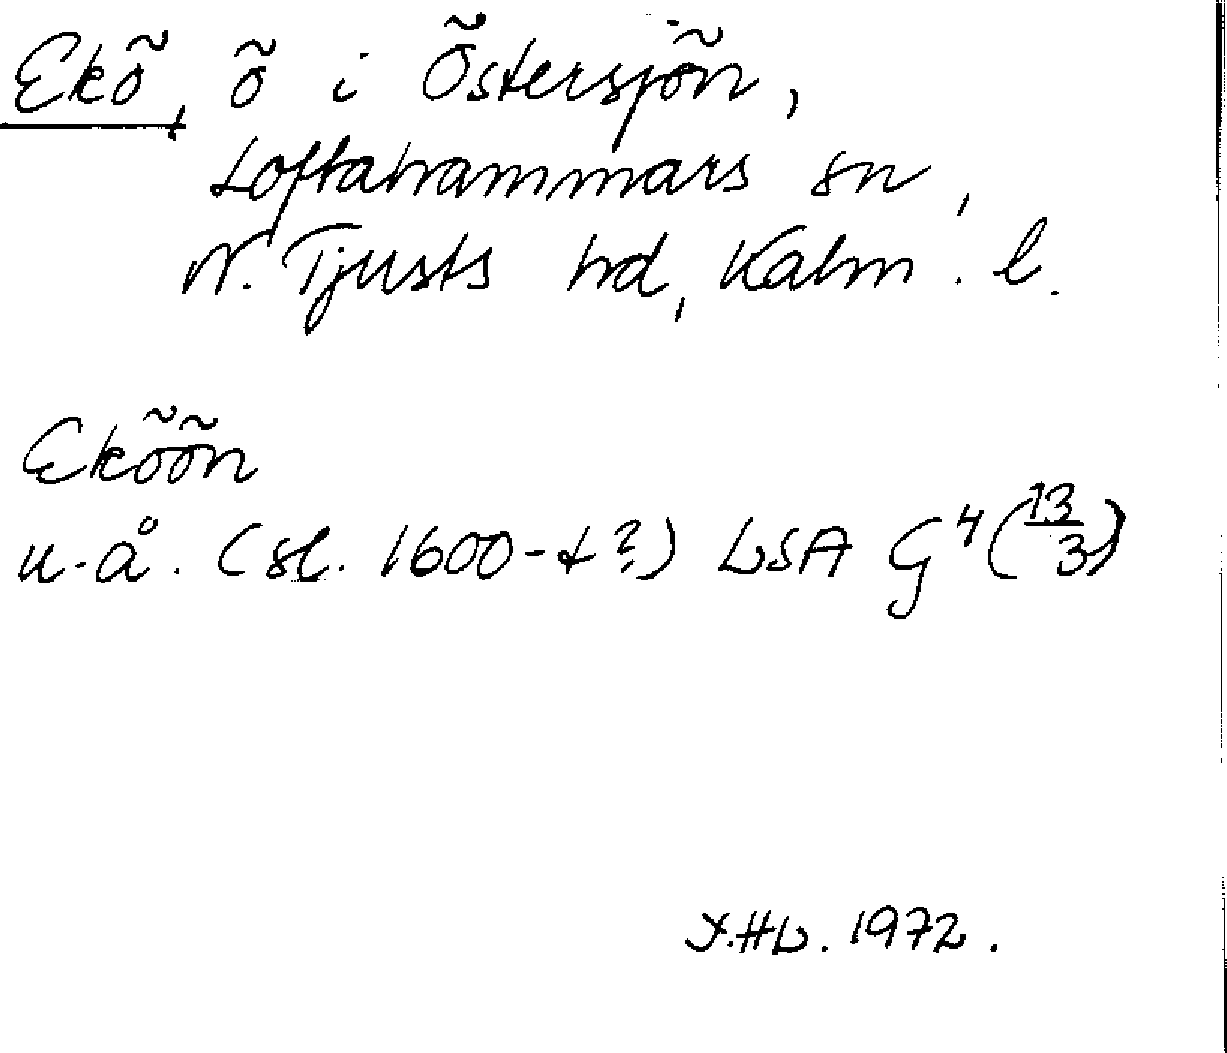 Ekö, ö i Östersjön,
Loftahammars sn,
N. Tjusts hd, Kalm. l.
Eköön
u.å. (sl. 1600-t?) LSA G⁴(13/3)
1972.